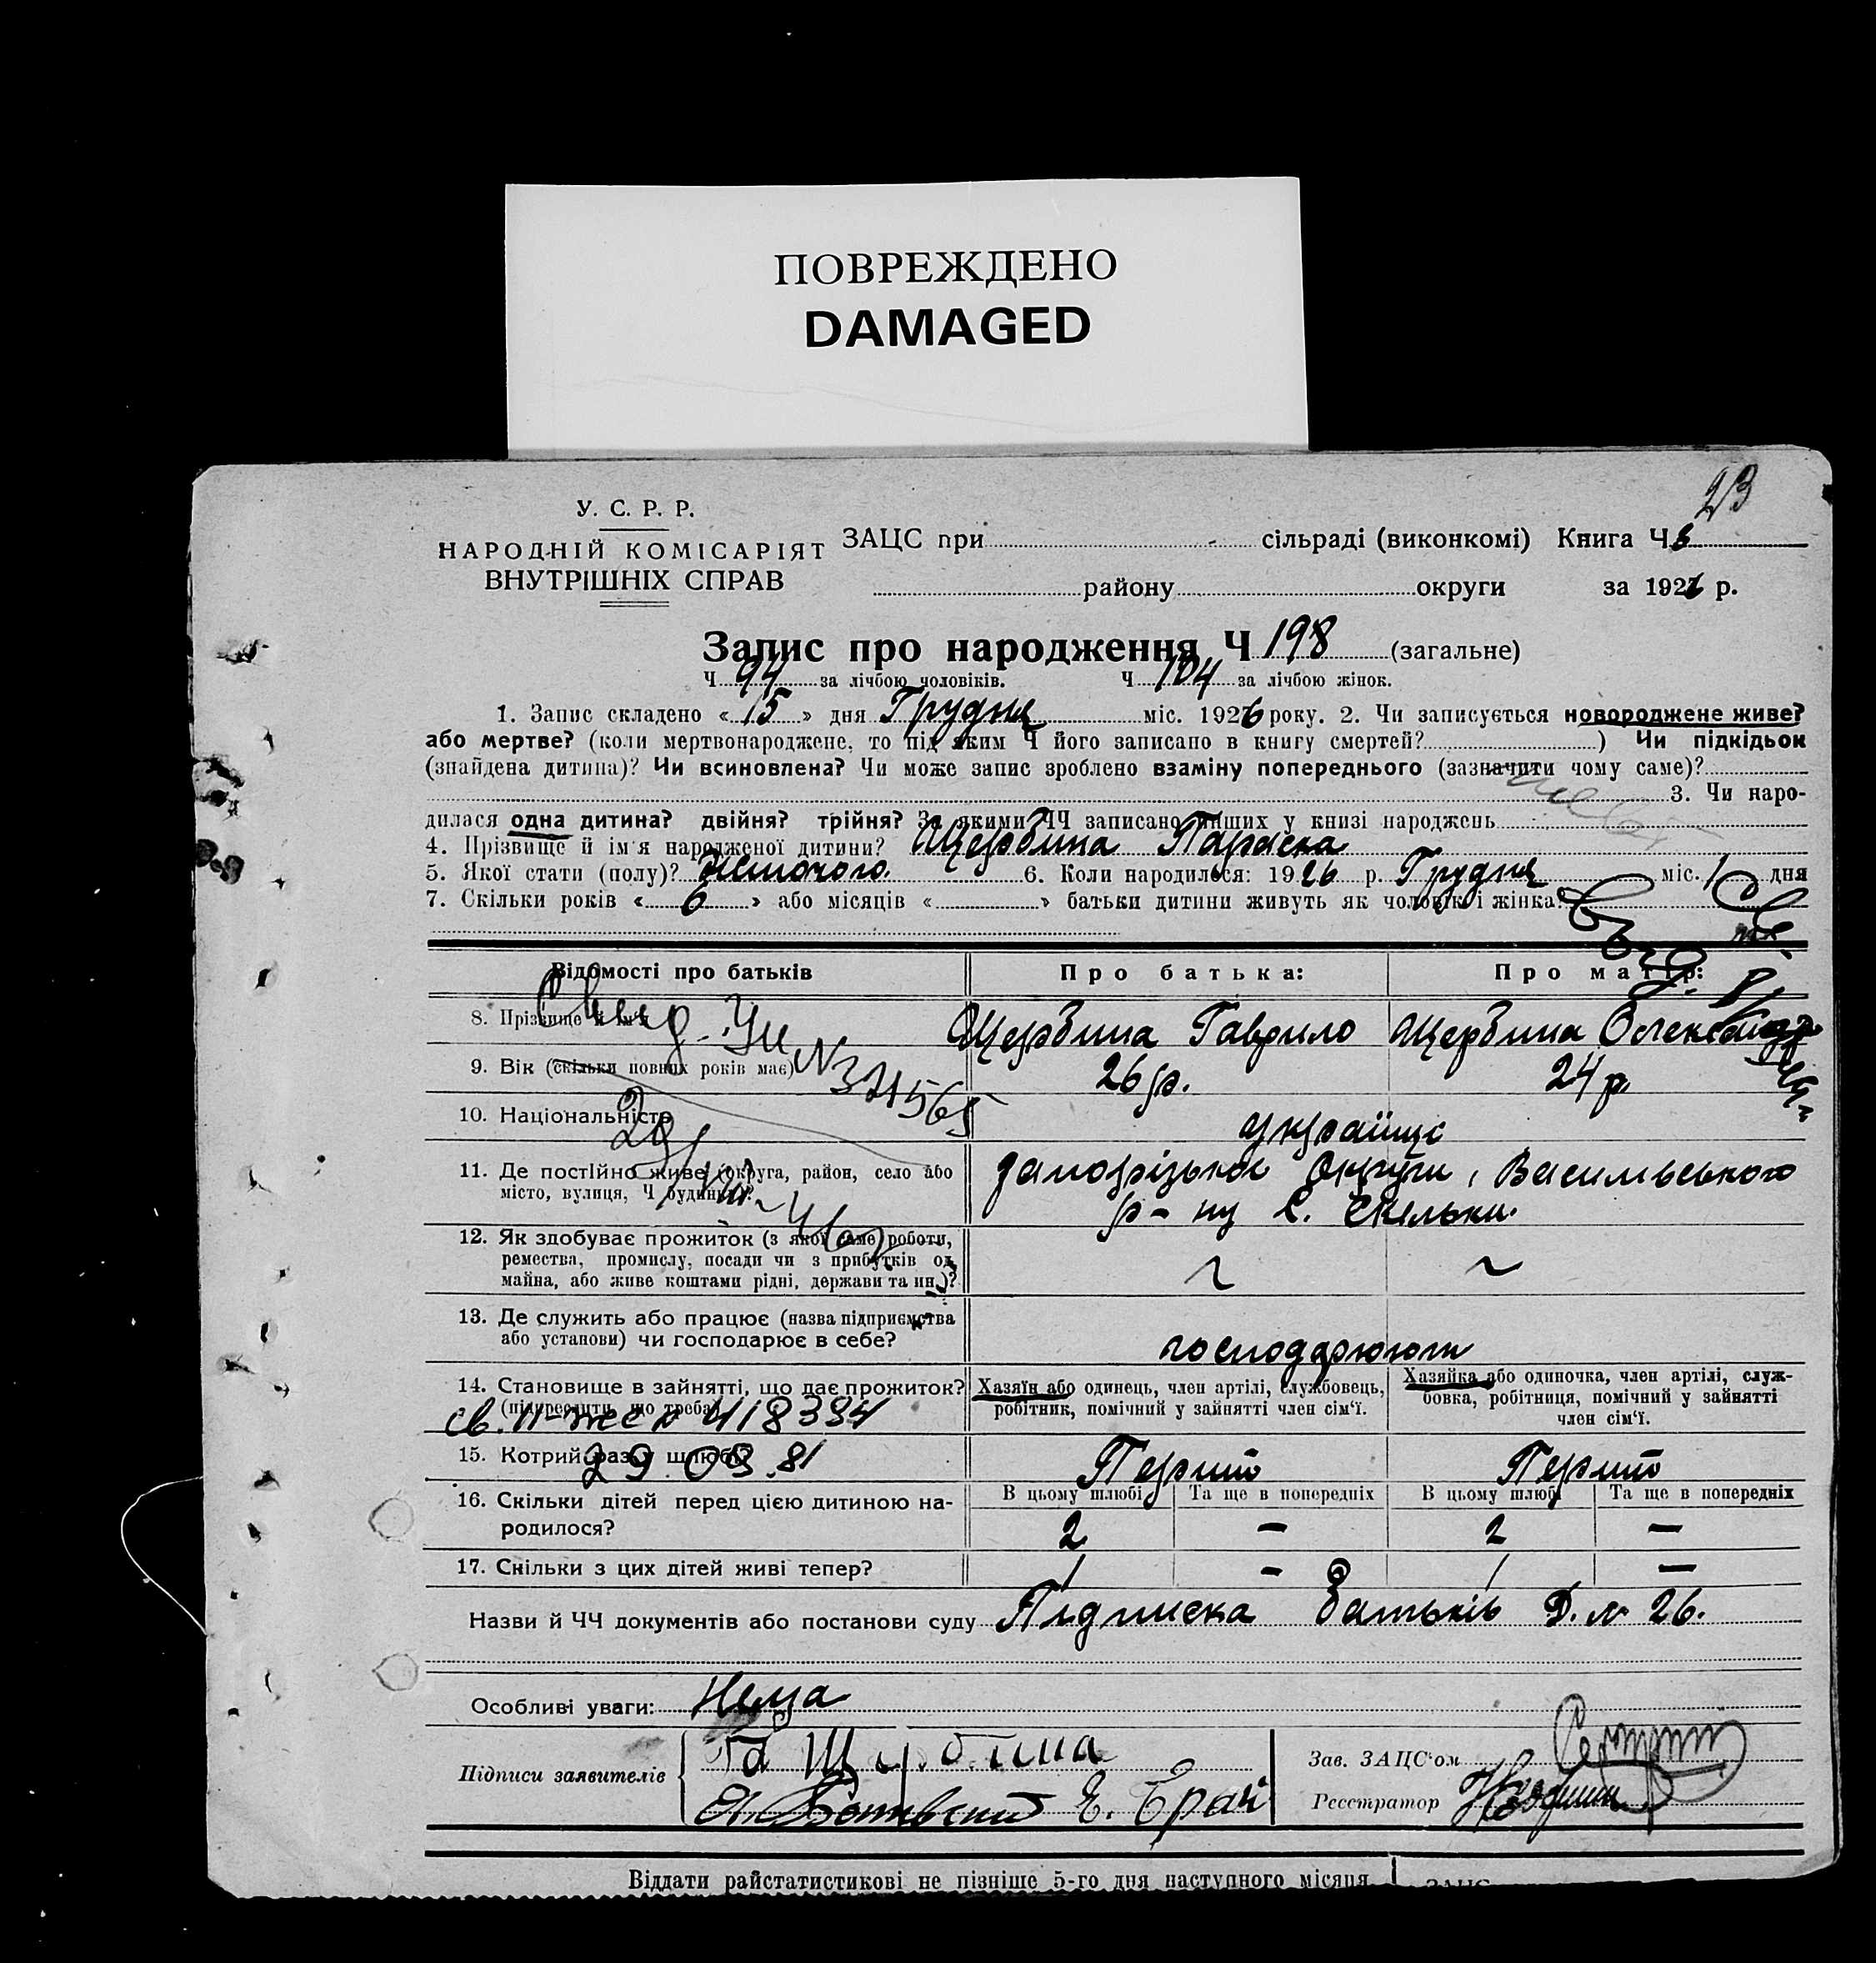 ПОВРЕЖДЕНО
DAMAGED
23
У. С. Р. Р.
НАРОДНІЙ КОМІСАРІЯТ
ВНУТРІШНІХ СПРАВ
ЗАЦС при сільраді (виконкомі) Книга Ч 3
району округи за 1926 р.
Запис про народження Ч 198 (загальне)
Ч 94 за лічбою чоловіків. Ч 104 за лічбою жінок.
1. Запис складено «15» дня Грудня міс. 1926 року. 2. Чи записується новороджене живе?
або мертве? (коли мертвонароджене, то під яким Ч його записано в книгу смертей? ) Чи підкідьок
(знайдена дитина)? Чи всиновлена? Чи може запис зроблено взаміну попереднього (зазначити чому саме)?
3. Чи наро-
дилася одна дитина? двійня? трійня? За якими ЧЧ записано инших у книзі народжень
4. Прізвище й ім'я народженої дитини? Щербина Параска
5. Якої стати (полу)? Жіночого 6. Коли народилося: 1926 р. Грудня міс. дня
7. Скільки років «6» або місяців « » батьки дитини живуть як чоловік і жінка?
Відомості про батьків Про батька: Про матір:
8. Прізвище й ім'я Щербина Гаврило Щербина Олександра
9. Вік (скільки повних років має) 26 р. 24 р.
10. Національність українці
11. Де постійно живе (округа, район, село або
місто, вулиця, Ч будинку)?
Запорізької Округи, Васильвського
р-ну С. Скельки.
12. Як здобуває прожиток (з якої саме роботи,
ремества, промислу, посади чи з прибутків од
майна, або живе коштами рідні, держави та ин.)?
13. Де служить або працює (назва підприємства
або установи) чи господарює в себе?
господарюють
14. Становище в зайнятті, що дає прожиток?
(підкреслити, що треба)
Хазяїн або одинець, член артілі, службовець,
робітник, помічний у зайнятті член сім'ї.
Хазяйка або одиночка, член артілі, служ-
бовка, робітниця, помічний у зайнятті
член сім'ї.
418394
15. Котрий раз у шлюбі? Перший Перший
29.09.81
16. Скільки дітей перед цією дитиною на-
родилося?
В цьому шлюбі Та ще в попередніх В цьому шлюбі Та ще в попередніх
2 – 2 –
17. Скільки з цих дітей живі тепер? 1 – 1 –
Назви й ЧЧ документів або постанови суду Підписка батьків Д. № 26.
Особливі уваги: Нема
Підписи заявителів
Щербина
Зав. ЗАЦС'ом
Реєстратор
Віддати райстатистикові не пізніше 5-го дня наступного місяця
ЗАЦС